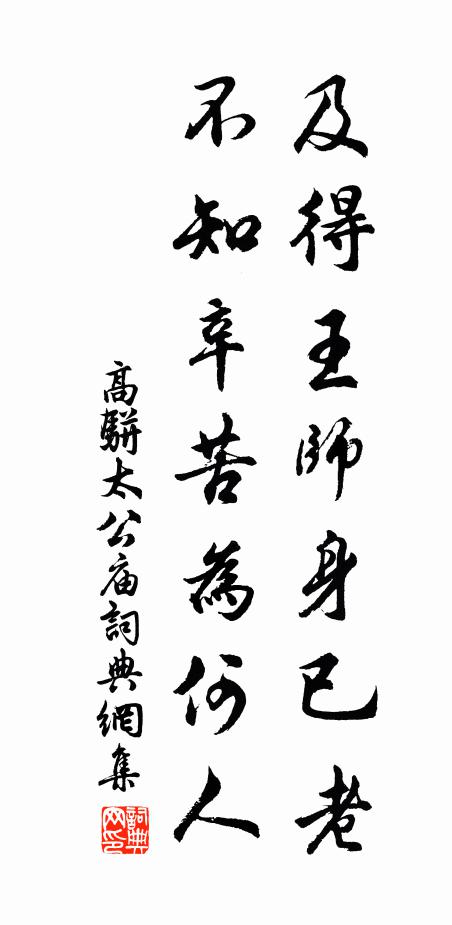 及得王師身已老
不知辛苦為何人
高駢太公庙詞典網集
詞典网印